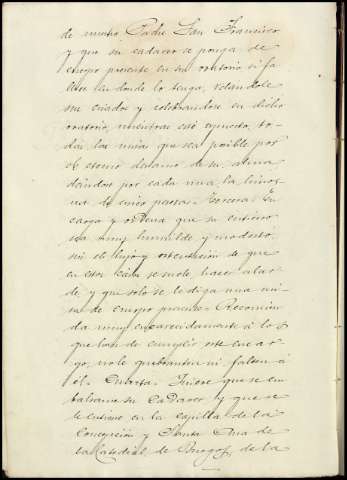 de nuestro Padre San Francisco
y que su cadaver se ponga de
cuerpo presente en su oratorio si fa
llece en donde lo tenga, velandole
sus criados y celebrandose en dicho
oratorio, mientras esté expuesto, to-
das las misas que sea posible por
el eterno descanso de su alma
dandose por cada una la limos-
na de cinco pesetas. Tercera. En
carga y ordena que su entierro
sea muy humilde y modesto
sin el lujo y ostentacion de que
en estos casos se suele hacer alar
de, y que solo se le diga una mi
sa de cuerpo presente. Recomien
da muy encarecidamente á los
que han de cumplir este encar
go, no le quebranten ni falten á
él. Cuarta. Quiere que se em
balsame su cadaver y que se
le entierre en la capilla de la
Concepción y Santa Ana de
la Catedral de Burgos, de la